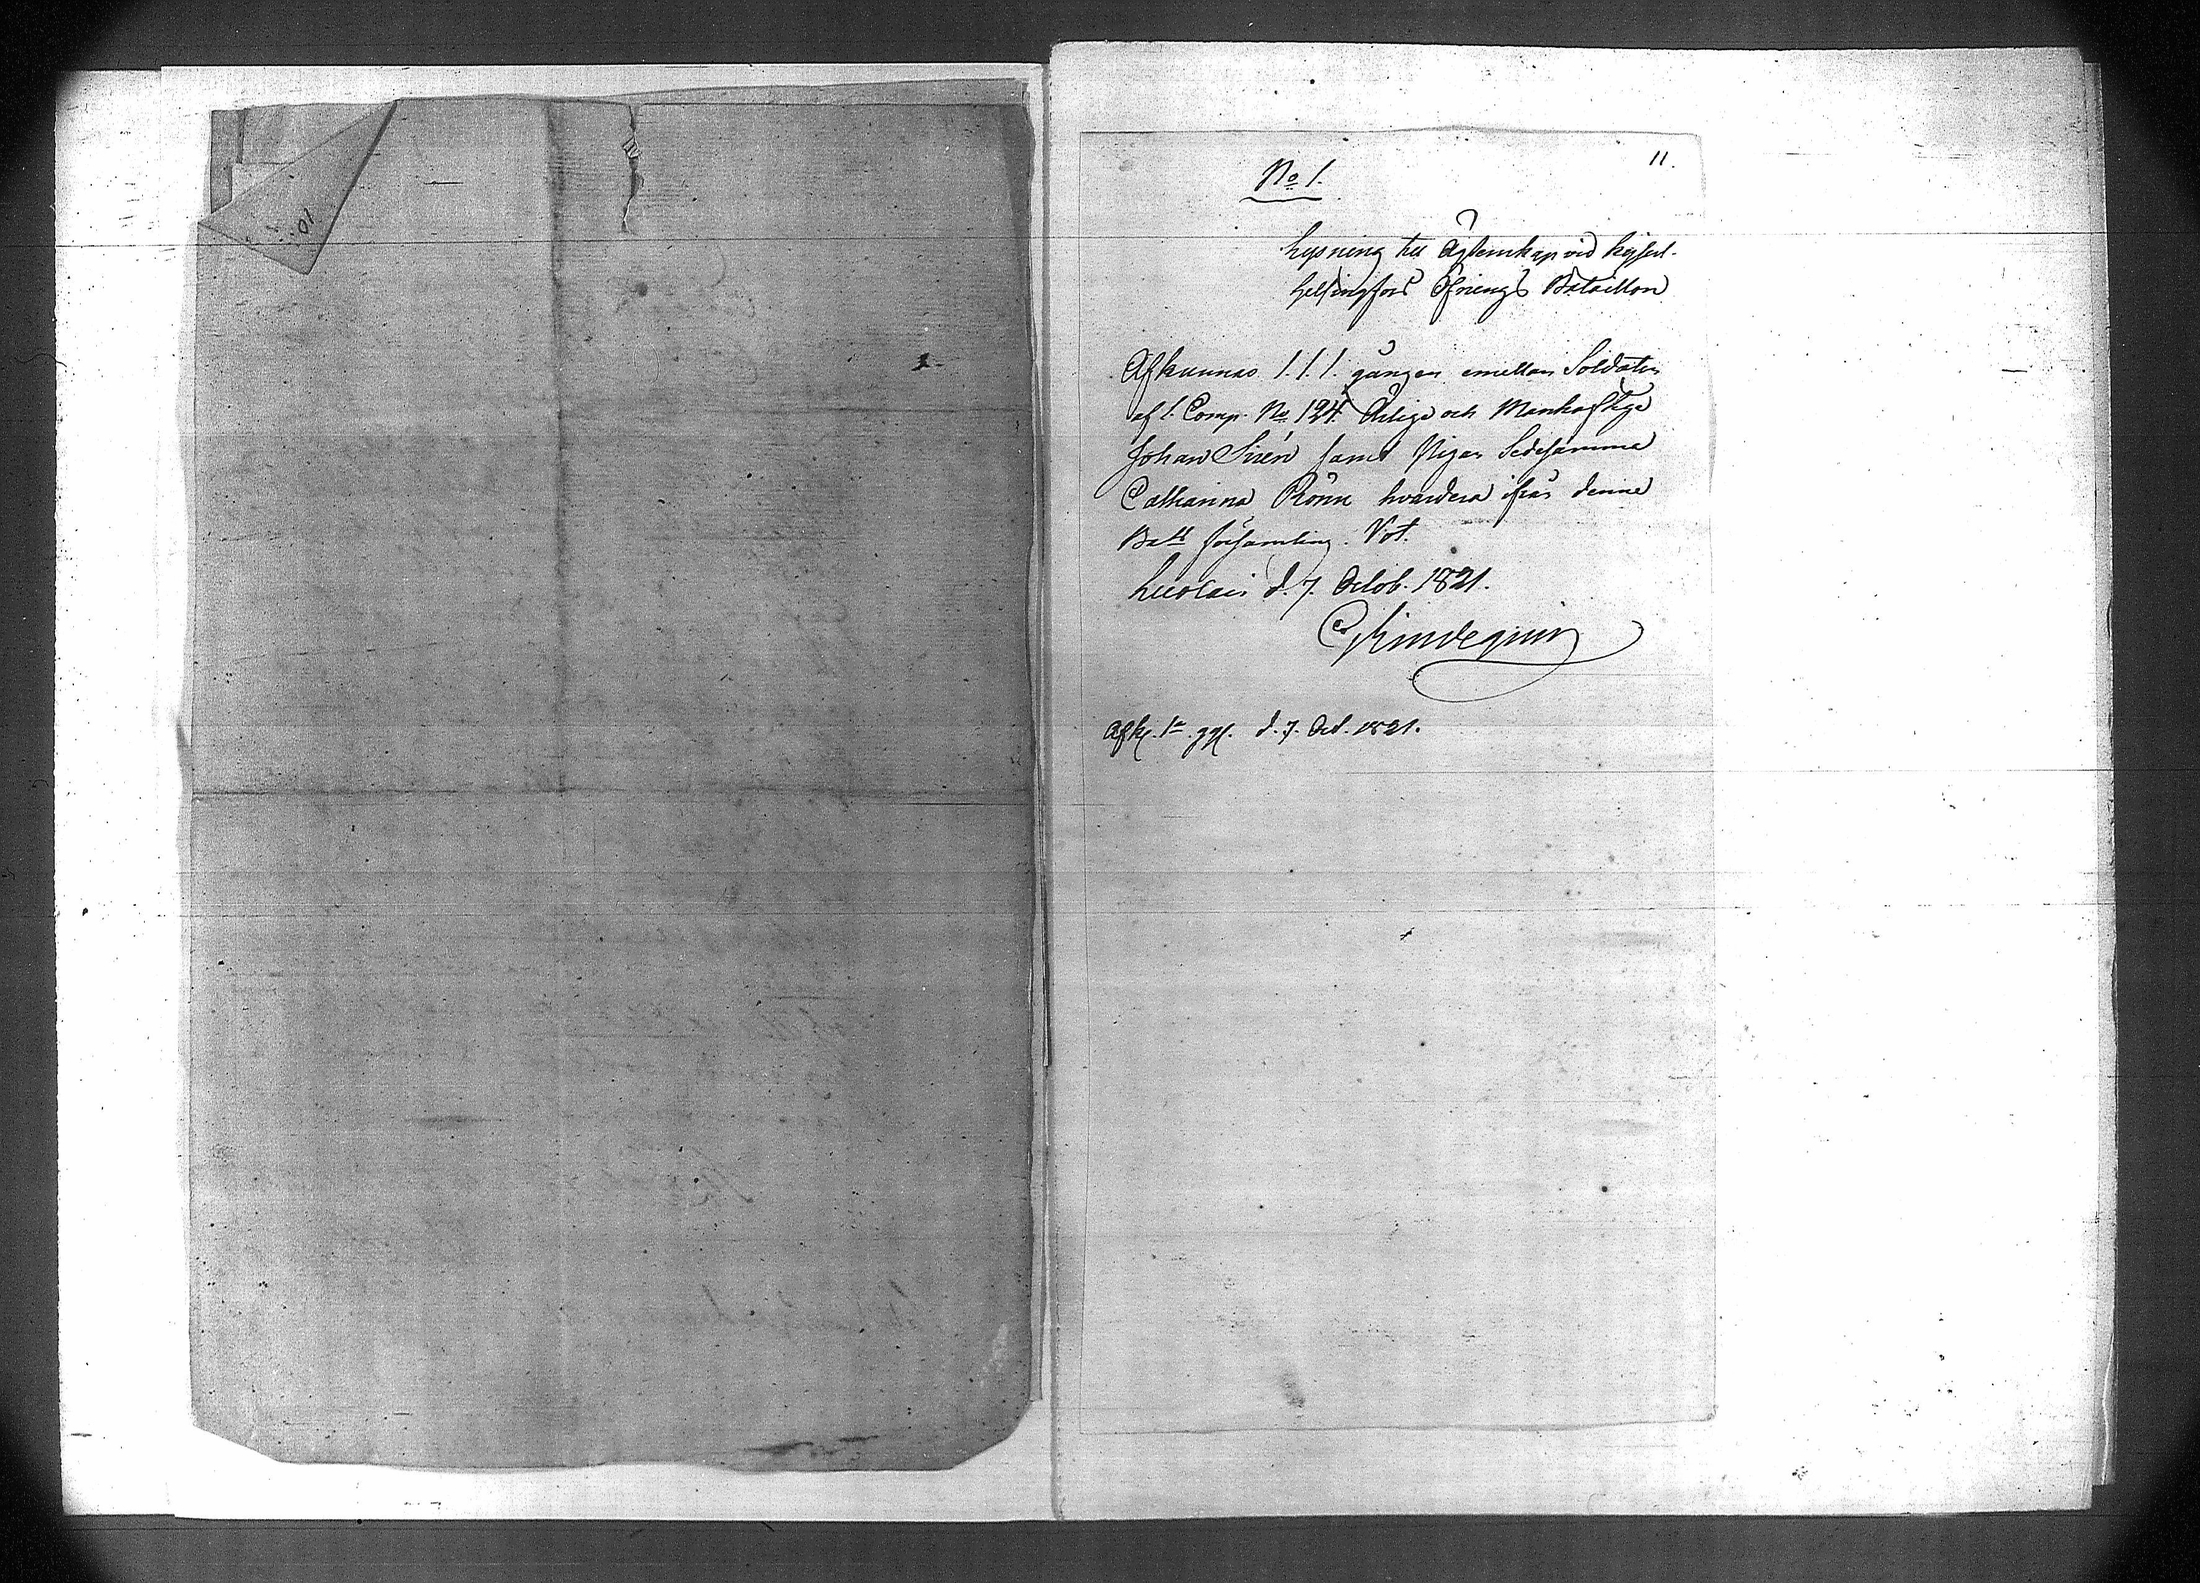 10.
11.
No 1.
Lysning till Ägtenskap vid Kejserl.
Helsingfors Öfnings Bataillon
Afkunnas 1. 1. 1. gången emellan Soldaten
af 1. Comp. No 124. Ärlige och Manhaftige
Johan Sirén samt Pigan Sedesamma
Catharina Rönn hvardera ifrån denne
Batt församling. Vot.
d. 7. Octob. 1821.
Afk. 1a gg. d. 7. Oct. 1821.